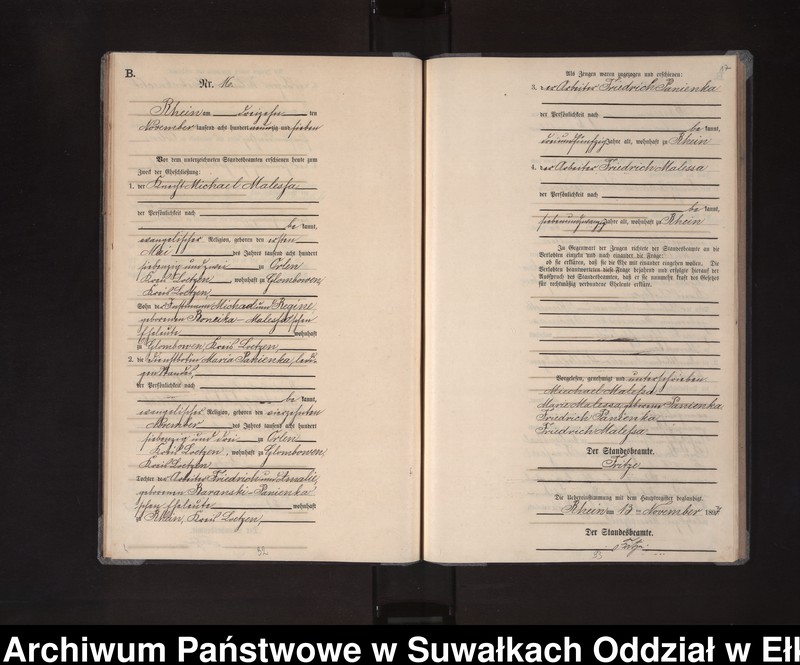 B.
Nr. 16.
Rhein am dreizehn ten
November tausend acht hundert neunzig und sieben
Vor dem unterzeichneten Standesbeamten erschienen heute zum
Zweck der Eheschließung:
1. der Knecht Michael Malessa
der Persönlichkeit nach
be kannt,
evangelischer Religion, geboren den ersten
Mai des Jahres tausend acht hundert
siebenzig und zwei zu Orlen
Kreis Loetzen, wohnhaft zu Glombowen,
Kreis Loetzen,
Sohn der Michael und Regine,
geborenen Malessa'schen
Eheleute wohnhaft
zu Glombowen, Kreis Loetzen,
2. die Dienstbotin Maria Panienka, ledi-
gen Standes,
der Persönlichkeit nach
be kannt,
evangelischer Religion, geboren den
November des Jahres tausend acht hundert
siebenzig und drei zu Orlen
Kreis Loetzen, wohnhaft zu Glombowen,
Kreis Loetzen
Tochter der Arbeiter Friedrich und Amalie,
geborenen Baranski-Panienka
'schen Eheleute wohnhaft
zu Rhein, Kreis Loetzen,
Als Zeugen waren zugezogen und erschienen:
3. der Arbeiter Friedrich Panienka
der Persönlichkeit nach
be kannt,
dreiundfünfzig Jahre alt, wohnhaft zu Rhein
4. der Arbeiter Friedrich Malessa
der Persönlichkeit nach
be kannt,
siebenundzwanzig Jahre alt, wohnhaft zu Rhein
In Gegenwart der Zeugen richtete der Standesbeamte an die
Verlobten einzeln und nach einander die Frage:
ob sie erklären, daß sie die Ehe mit einander eingehen wollen. Die
Verlobten beantworteten diese Frage bejahend und erfolgte hierauf der
Ausspruch des Standesbeamten, daß er sie nunmehr kraft des Gesetzes
für rechtmäßig verbundene Eheleute erkläre.
Vorgelesen, genehmigt und unterschrieben
Michael Malessa
Marie Malessa geborene Panienka
Friedrich Panienka
Friedrich Malessa
Der Standesbeamte.
Fritze
Die Uebereinstimmung mit dem Hauptregister beglaubigt.
Rhein am 13 November 1897.
Der Standesbeamte.
Archiwum Państwowe w Suwałkach Oddział w Ełk